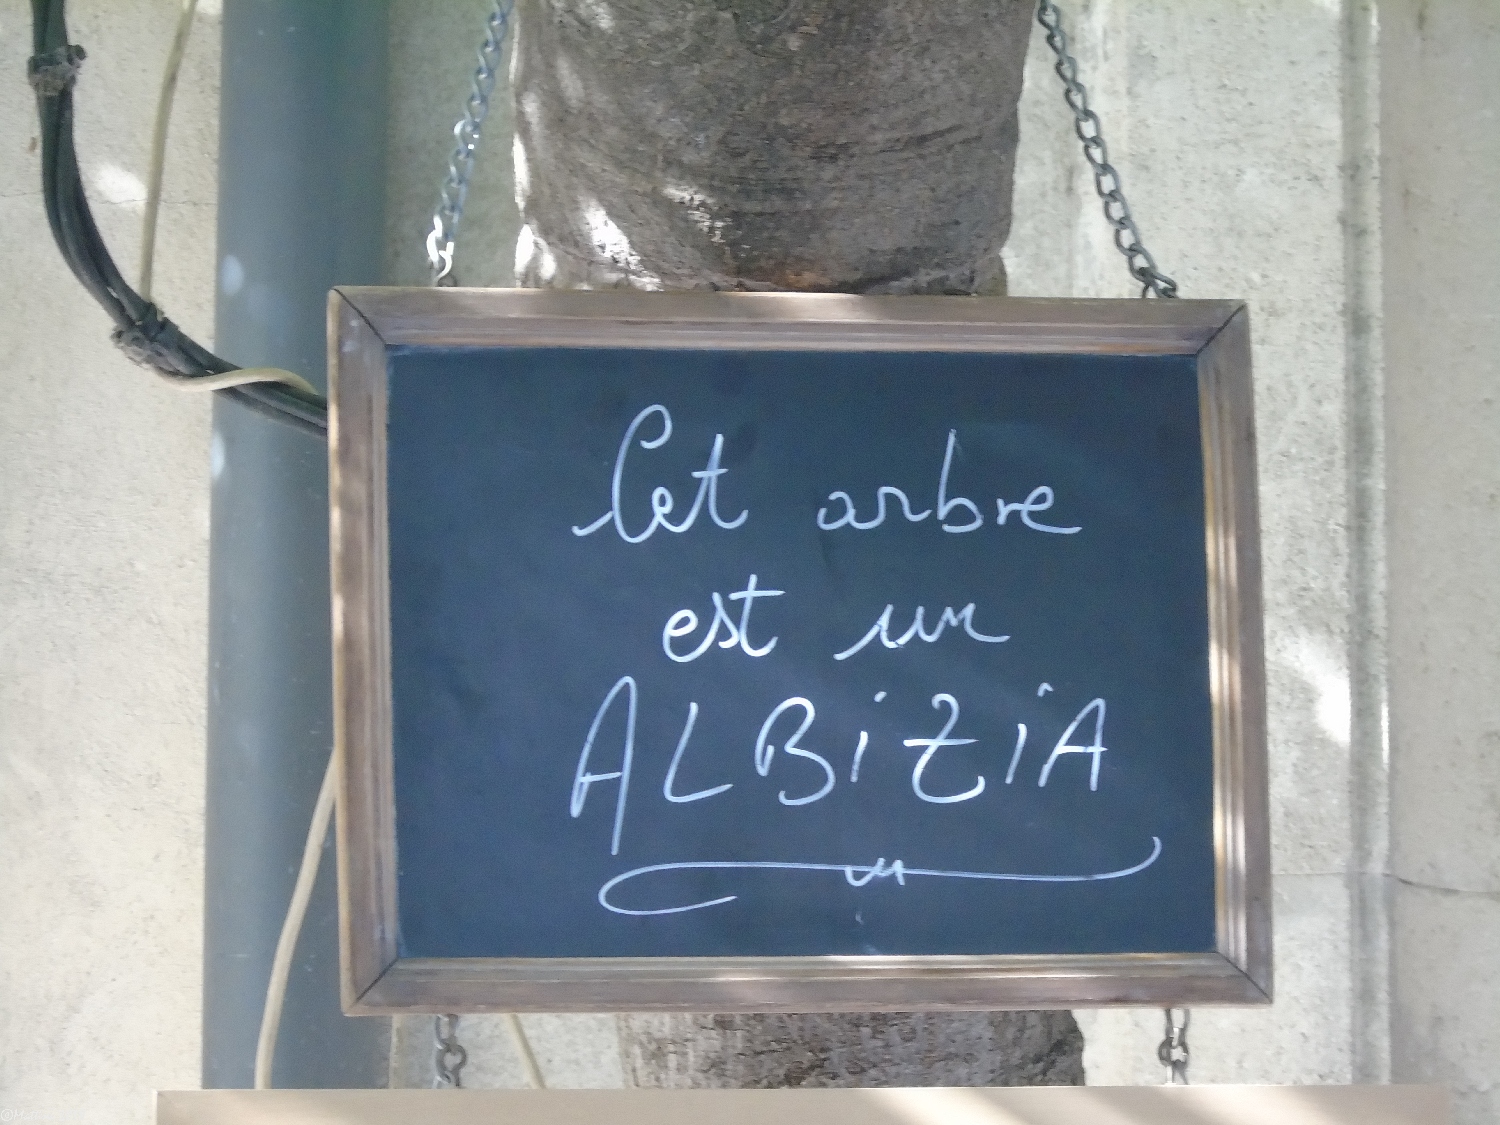 Cet arbre
est un
ALBiZiA